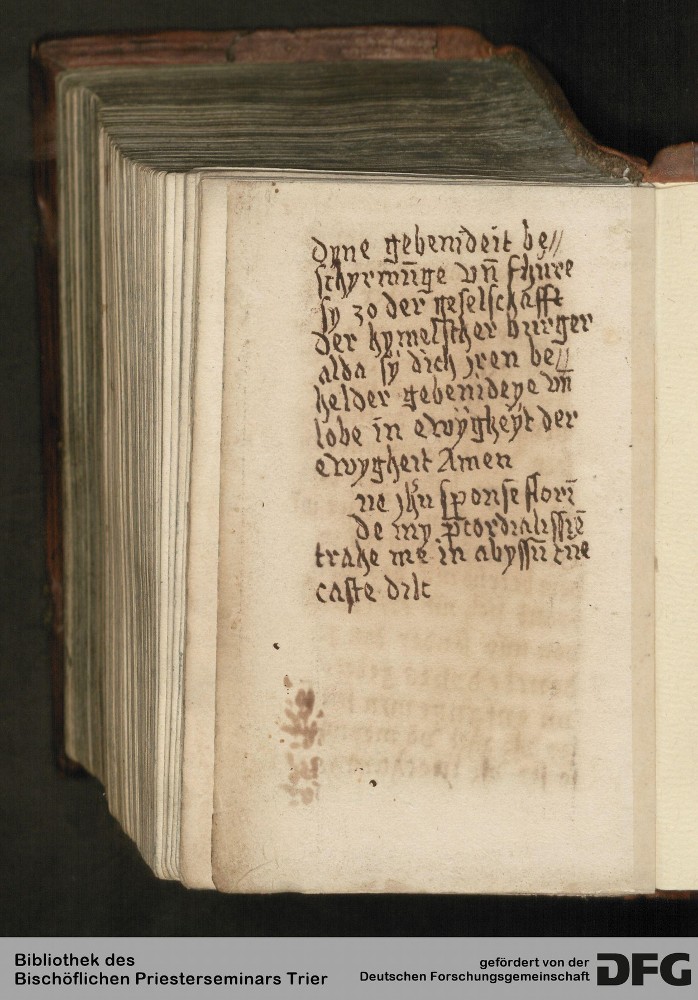 dyne gebenideit be//
schyrmūge vn̄ fhure
sy zo der geselschafft
der hymelscher burger
alda sy dich jren be//
helder gebenideye vn̄
lobe in ewygheyt der
ewygheit Amen
ue jhū sponse flori
de my p̄cordialissīe
trahe me in abyssū tue
caste dilc
Bibliothek des
Bischöflichen Priesterseminars Trier
gefördert von der
Deutschen Forschungsgemeinschaft DFG